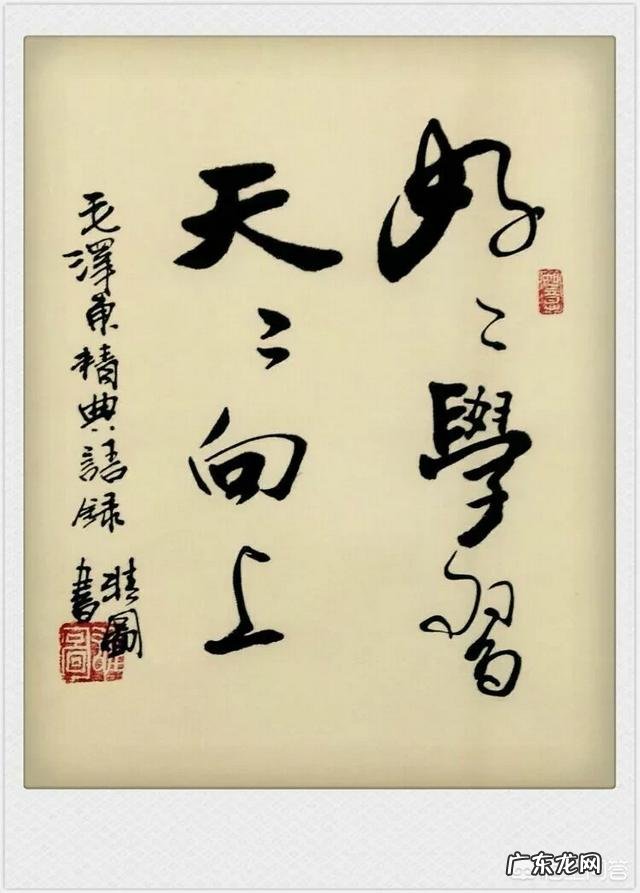 好〻學習
天〻向上
毛澤東精典語錄
圖
書
广东龙网